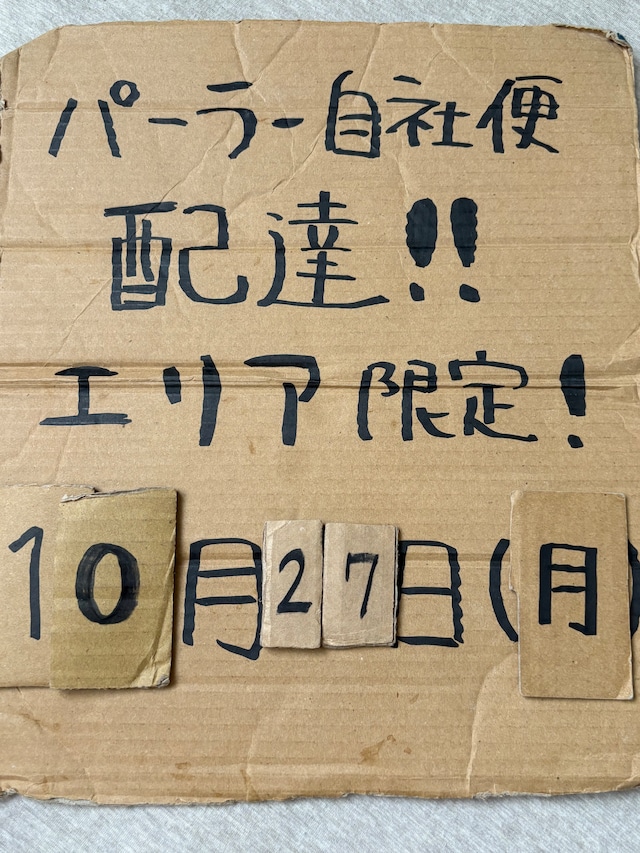 パーラー自社便
配達!!
エリア限定!
10月27日(月)